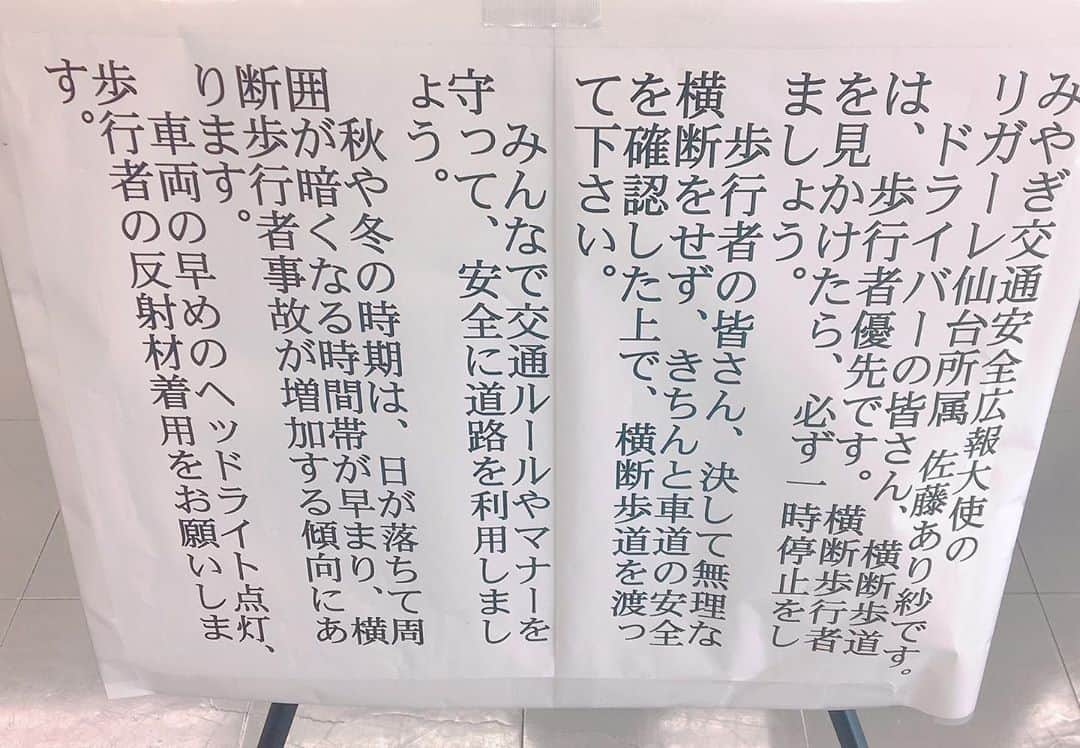 みやぎ交通安全広報大使の
リガーレ仙台所属　佐藤あり紗です。
　ドライバーの皆さん、横断歩道
は、歩行者優先です。横断歩行者
を見かけたら、必ず一時停止をし
ましょう。
　歩行者の皆さん、決して無理な
横断をせず、きちんと車道の安全
を確認した上で、横断歩道を渡っ
て下さい。
　みんなで交通ルールやマナーを
守って、安全に道路を利用しまし
ょう。
　秋や冬の時期は、日が落ちて周
囲が暗くなる時間帯が早まり、横
断歩行者事故が増加する傾向にあ
ります。
　車両の早めのヘッドライト点灯、
歩行者の反射材着用をお願いしま
す。